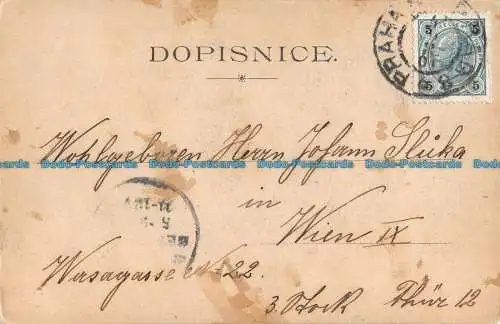 DOPISNICE.
PRAHA
5 5
5 5
Wohlgeboren Herrn Johann Slika
Dodo-Postcards Dodo-Postcards Dodo-Postcards Dodo-Postcards Dodo-Postcards
in
Wien IX
Wasagasse No 22
3. Stock Thür 12